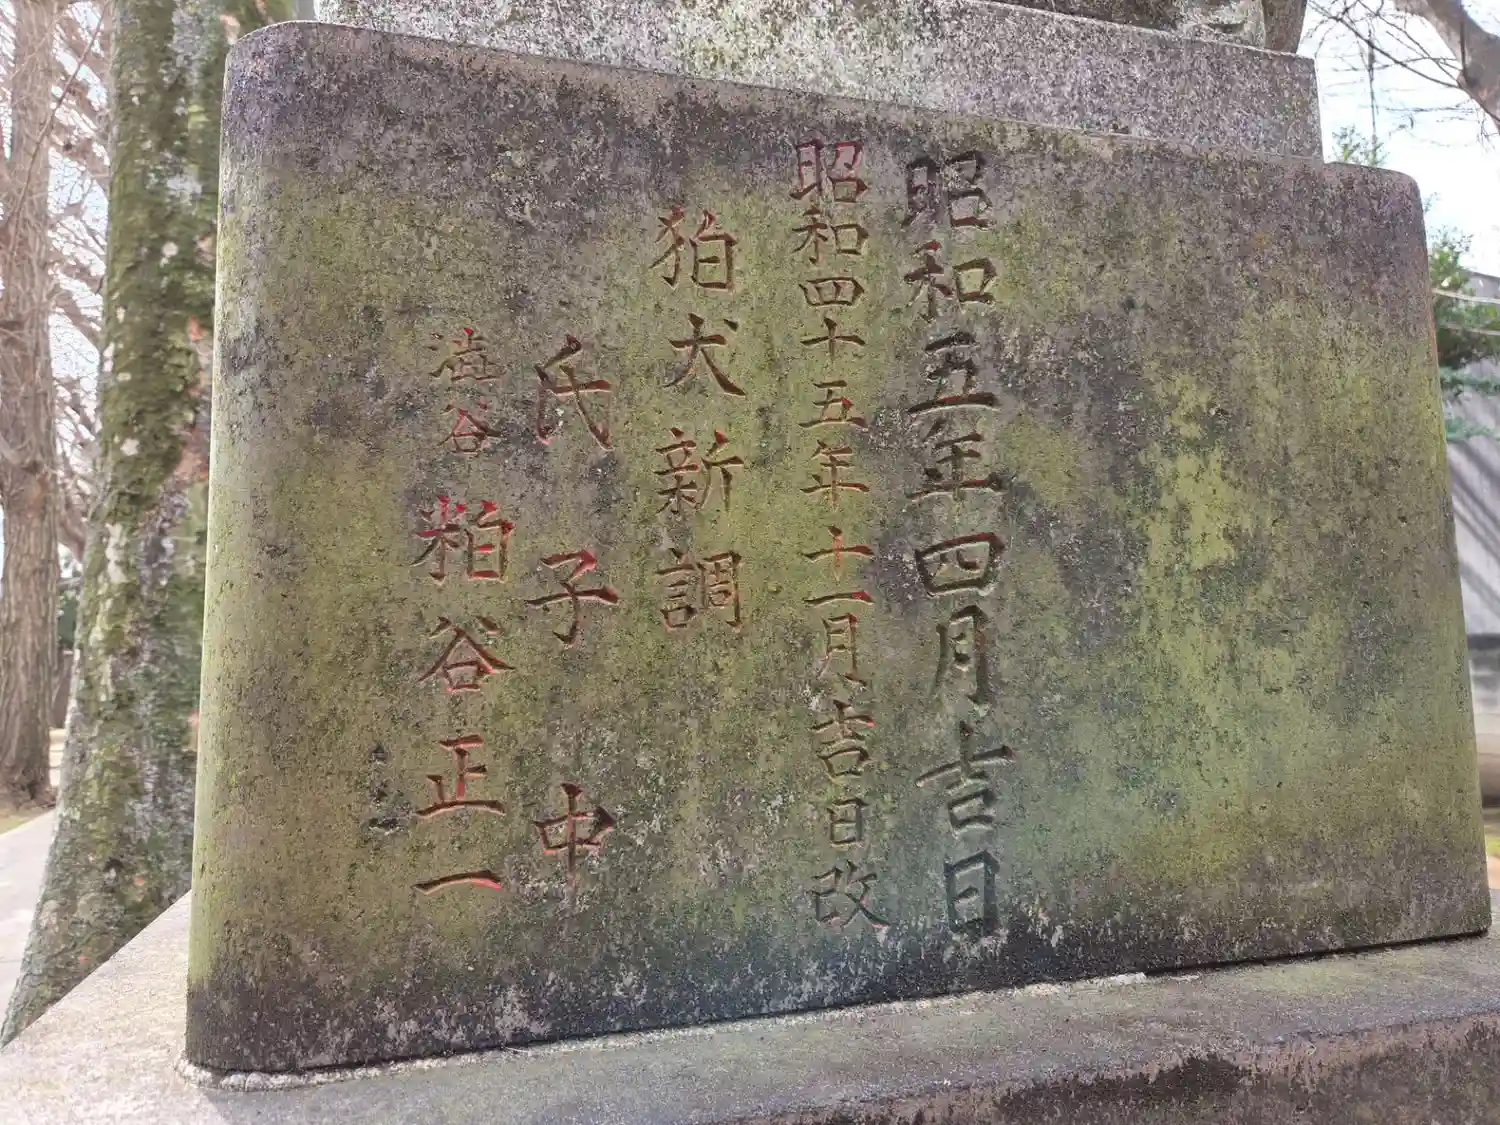 昭和五年四月吉日
昭和四十五年十一月吉日改
狛犬新調
氏子中
澁谷 粕谷正一